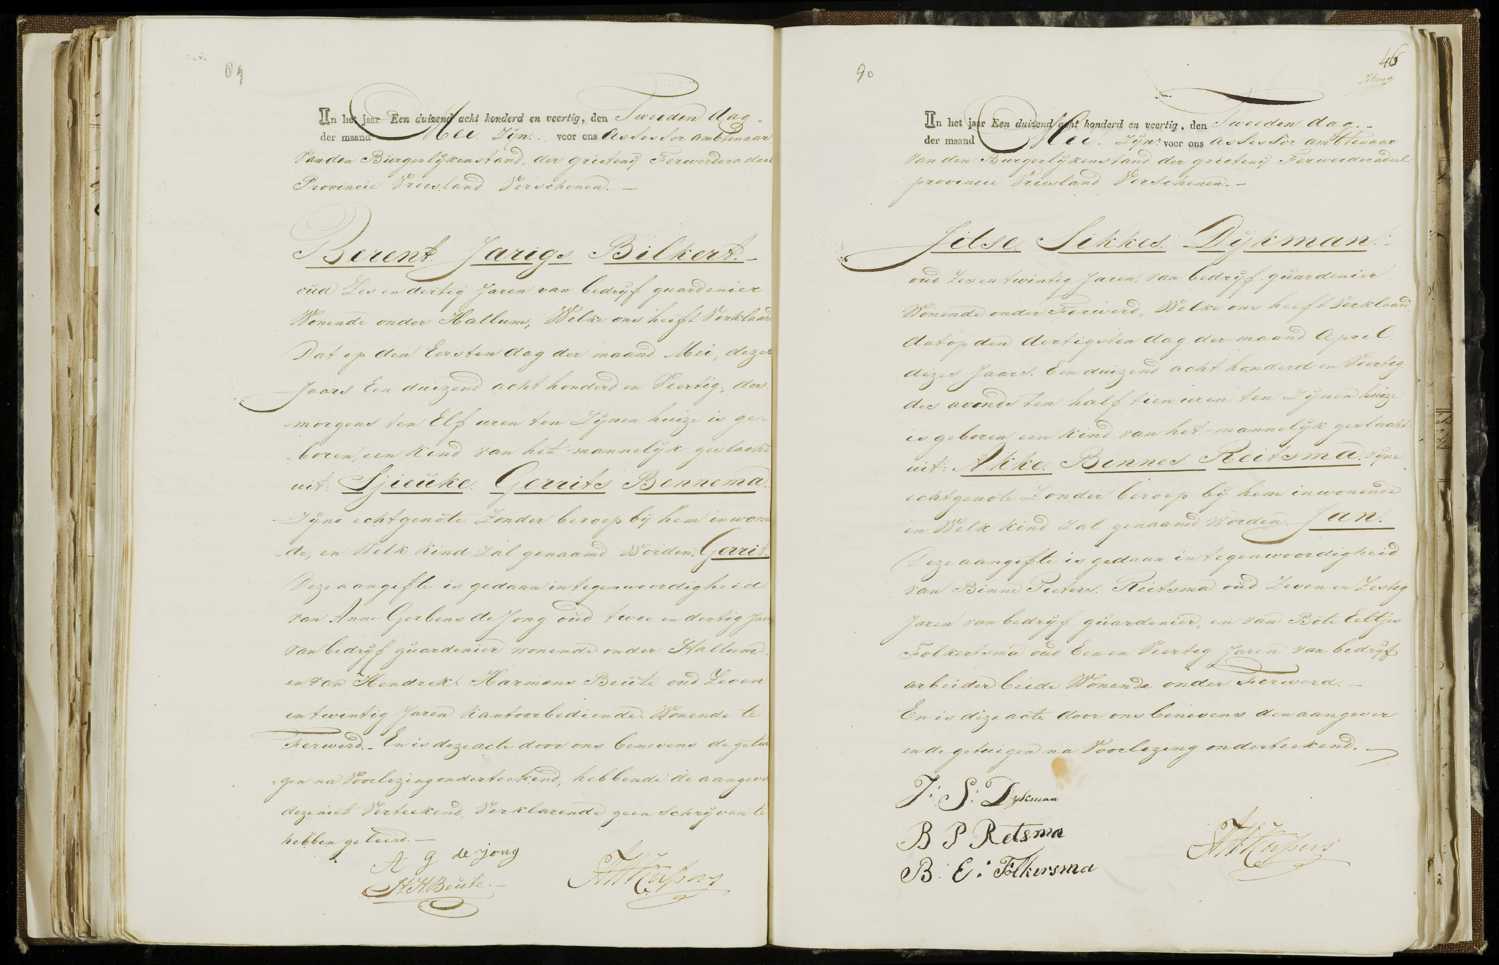 89
In het jaar Een duizend acht honderd en veertig, den Tweeden dag
der maand Mei Zÿn voor ons Assessor ambtenaar
van den Burgerlÿkenstand, der grietenÿ Ferwerderadeel
Provincie Vriesland Verschenen. —
Berent Jarigs Bilkert. —
oud Zes en dertig Jaren van bedrÿf guardenier
Wonende onder Hallum, Welke ons heeft Verklaard
Dat op den Eersten dag der maand Mei, dezes
Jaars Een duizend acht honderd en Veertig, des
morgens ten Elf uren ten Zÿnen huize is ge-
boren, een kind van het mannelÿk geslacht
uit Sjieuke Gerrits Bennema
Zÿne echtgenote Zonder beroep bÿ hem inwonen
de, en Welk kind Zal genaamd Worden, Gerrit
Deze aangifte is gedaan in tegenwoordigheid
van Anne Gerbens de Jong oud twee en dertig Jaren
van bedrÿf guardenier wonende onder Hallum
en van Hendrik Harmens Beute oud Zeven
en twintig Jaren kantoorbediende Wonende te
Ferwerd. En is deze acte door ons benevens de getui
gen na Voorlezing onderteekend, hebbende de aangever
deze niet Verteekend, Verklarende geen schrÿven te
hebben geleerd. —
A G de jong
H H Beute
90
46
In het jaar Een duizend acht honderd en veertig, den Tweeden dag
der maand Mei Zÿn voor ons Assessor ambtenaar
van den Burgerlÿkenstand der grietenÿ Ferwerderadeel
provincie Vriesland Verschenen. —
Jilse Sikkes Dÿkman
oud Zes en twintig Jaren, van bedrÿf guardenier
Wonende onder Ferwerd, Welke ons heeft Verklaard
dat op den dertigsten dag der maand April
dezes Jaars Een duizend acht honderd en Veertig
des avonds ten half tien uren ten Zÿnen huize
is geboren een kind van het mannelÿk geslacht
uit Akke Bennes Reitsma, zÿne
echtgenote Zonder beroep bÿ hem inwonende
en Welk kind Zal genaamd Worden Jan.
Deze aangifte is gedaan in tegenwoordigheid
van Binne Pieters Reitsma oud Zeven en Zestig
Jaren van bedrÿf guardenier, en van Bote Eeltjes
Folkertsma oud Een en Veertig Jaren van bedrÿf
arbeider beide Wonende onder Ferwerd. —
En is deze acte door ons benevens den aangever
en de getuigen na Voorlezing onderteekend. —
J: S: Dykman
B P Retsma
B: E: Folkersma